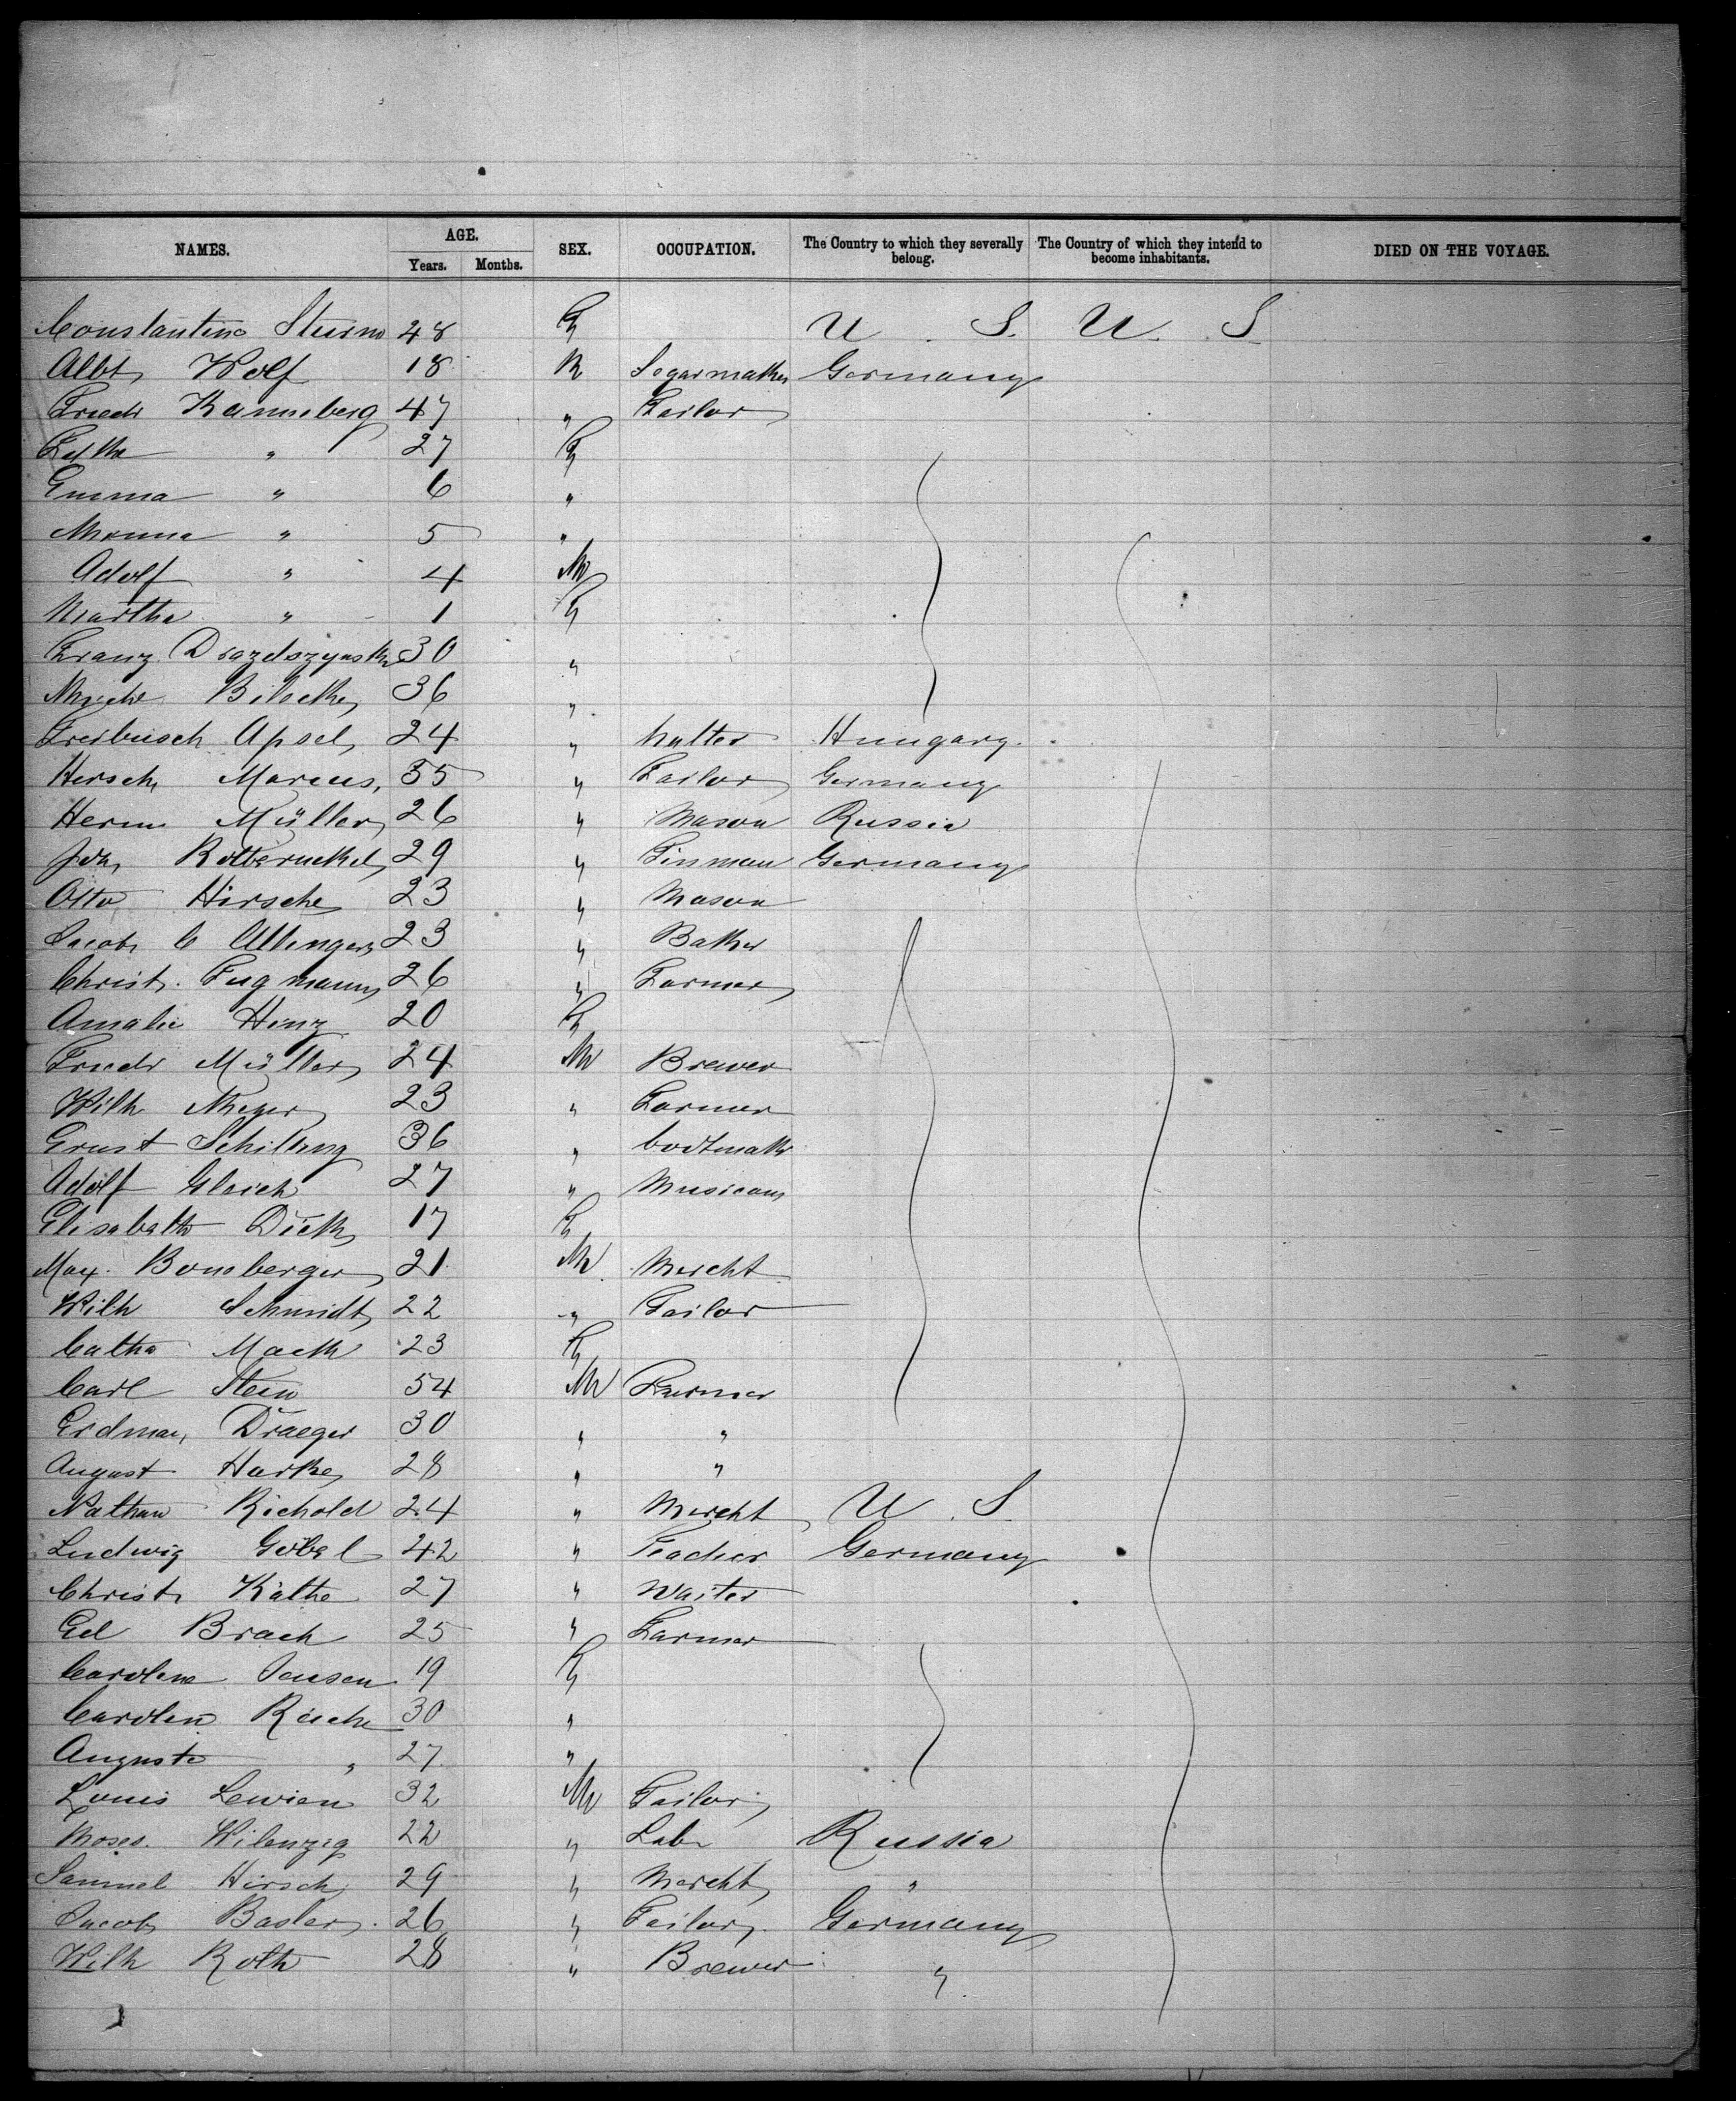 NAMES. AGE. Years. Months. SEX. OCCUPATION. The Country to which they severally belong. The Country of which they intend to become inhabitants. DIED ON THE VOYAGE.
Constantine Sturm 48 F U. S. U. S.
Albt Wolf 18 M Segarmaker Germany
Friedr Kanneberg 47 " Tailor
" 27 F
Emma " 6 "
Minna " 5 "
Adolf " 4 M
Martha " 1 F
Franz 30 "
36 "
Apsel 24 " Hungary
Hirsch Marcus, 35 " Tailor Germany
Herm Müller 26 " Mason Russia
Joh 29 " Tinman Germany
Otto Hirsche 23 " Mason
Jacob C Allinger 23 " Baker
Christ. Fugmann 26 " Farmer
Amalie Hinz 20 F
Friedr Müller 24 M Brewer
Wilh Meyer 23 " Farmer
Ernst Schilling 36 " bootmaker
Adolf 27 " Musican
Elisabeth Dick 17 F
Max Bomberger 21 M Mercht
Wilh Schmidt 22 " Tailor
Catha Mack 23 F
Carl Stein 54 M Farmer
Erdman Draeger 30 " "
August Harke 28 " "
Nathan Richold 24 " Mercht U. S.
Ludwig Göbel 42 " Teacher Germany
Christ Käthe 27 " Waiter
Ed Brach 25 " Farmer
Caroline Jensen 19 F
Carolin 30 "
Auguste " 27 "
Louis Lewien 32 M Tailor
Moses Wilenzig 22 " Labr Russia
Samuel Hirsch 29 " Mercht "
Jacob Basler 26 " Tailor Germany
Wilh Roth 28 " Brewer "